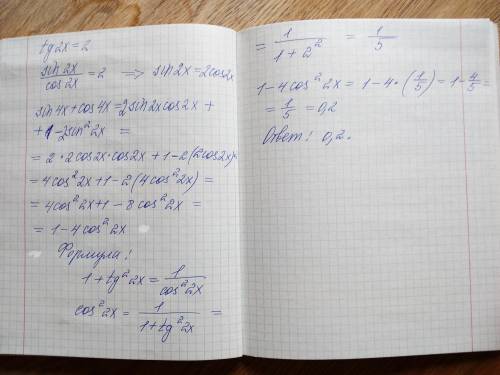 tg2x = 2
sin2x/cos2x = 2 => sin2x = 2cos2x
sin4x + cos4x = 2sin2xcos2x +
+ 1 - 2sin²2x =
= 2 * 2cos2x * cos2x + 1 - 2(2cos2x)² =
= 4cos²2x + 1 - 2(4cos²2x) =
= 4cos²2x + 1 - 8cos²2x =
= 1 - 4cos²2x
Формула:
1 + tg²2x = 1/cos²2x
cos²2x = 1/(1 + tg²2x) =
= 1/(1 + 2²) = 1/5
1 - 4cos²2x = 1 - 4 * (1/5) = 1 - 4/5 =
= 1/5 = 0,2
Ответ: 0,2.